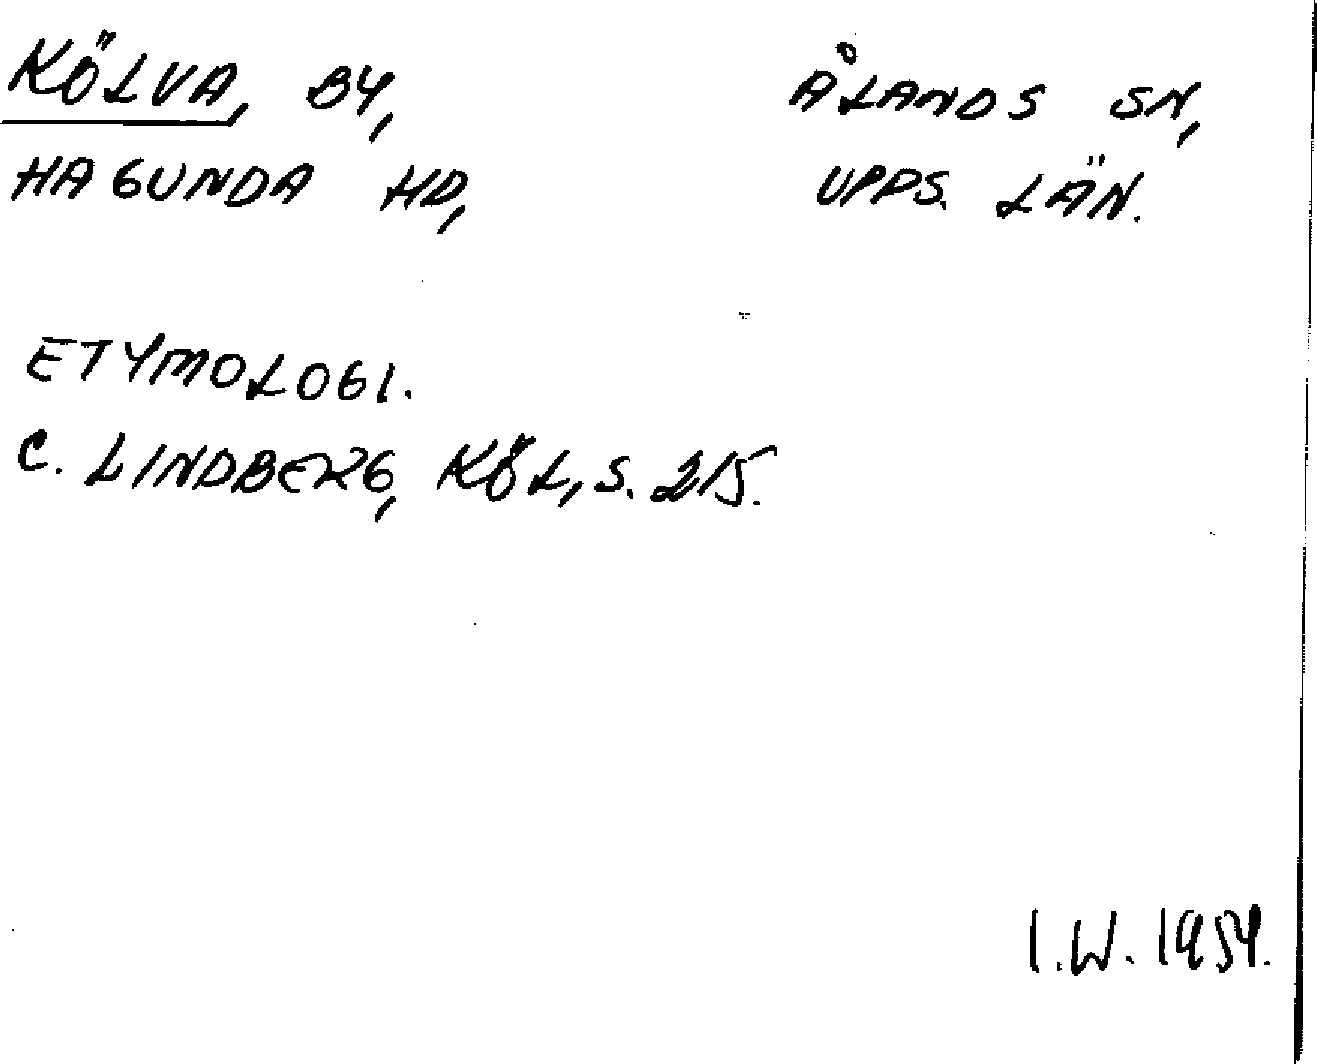 KÖLVA, BY, ÅLANDS SN,
HAGUNDA HD, UPPS. LÄN.
ETYMOLOGI.
C. LINDBERG, KÖL, S. 215.
I.W. 1954.